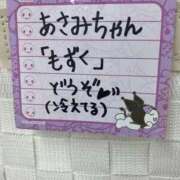 あさみちゃん
「もずく」
どうぞ♥
(冷えてる)